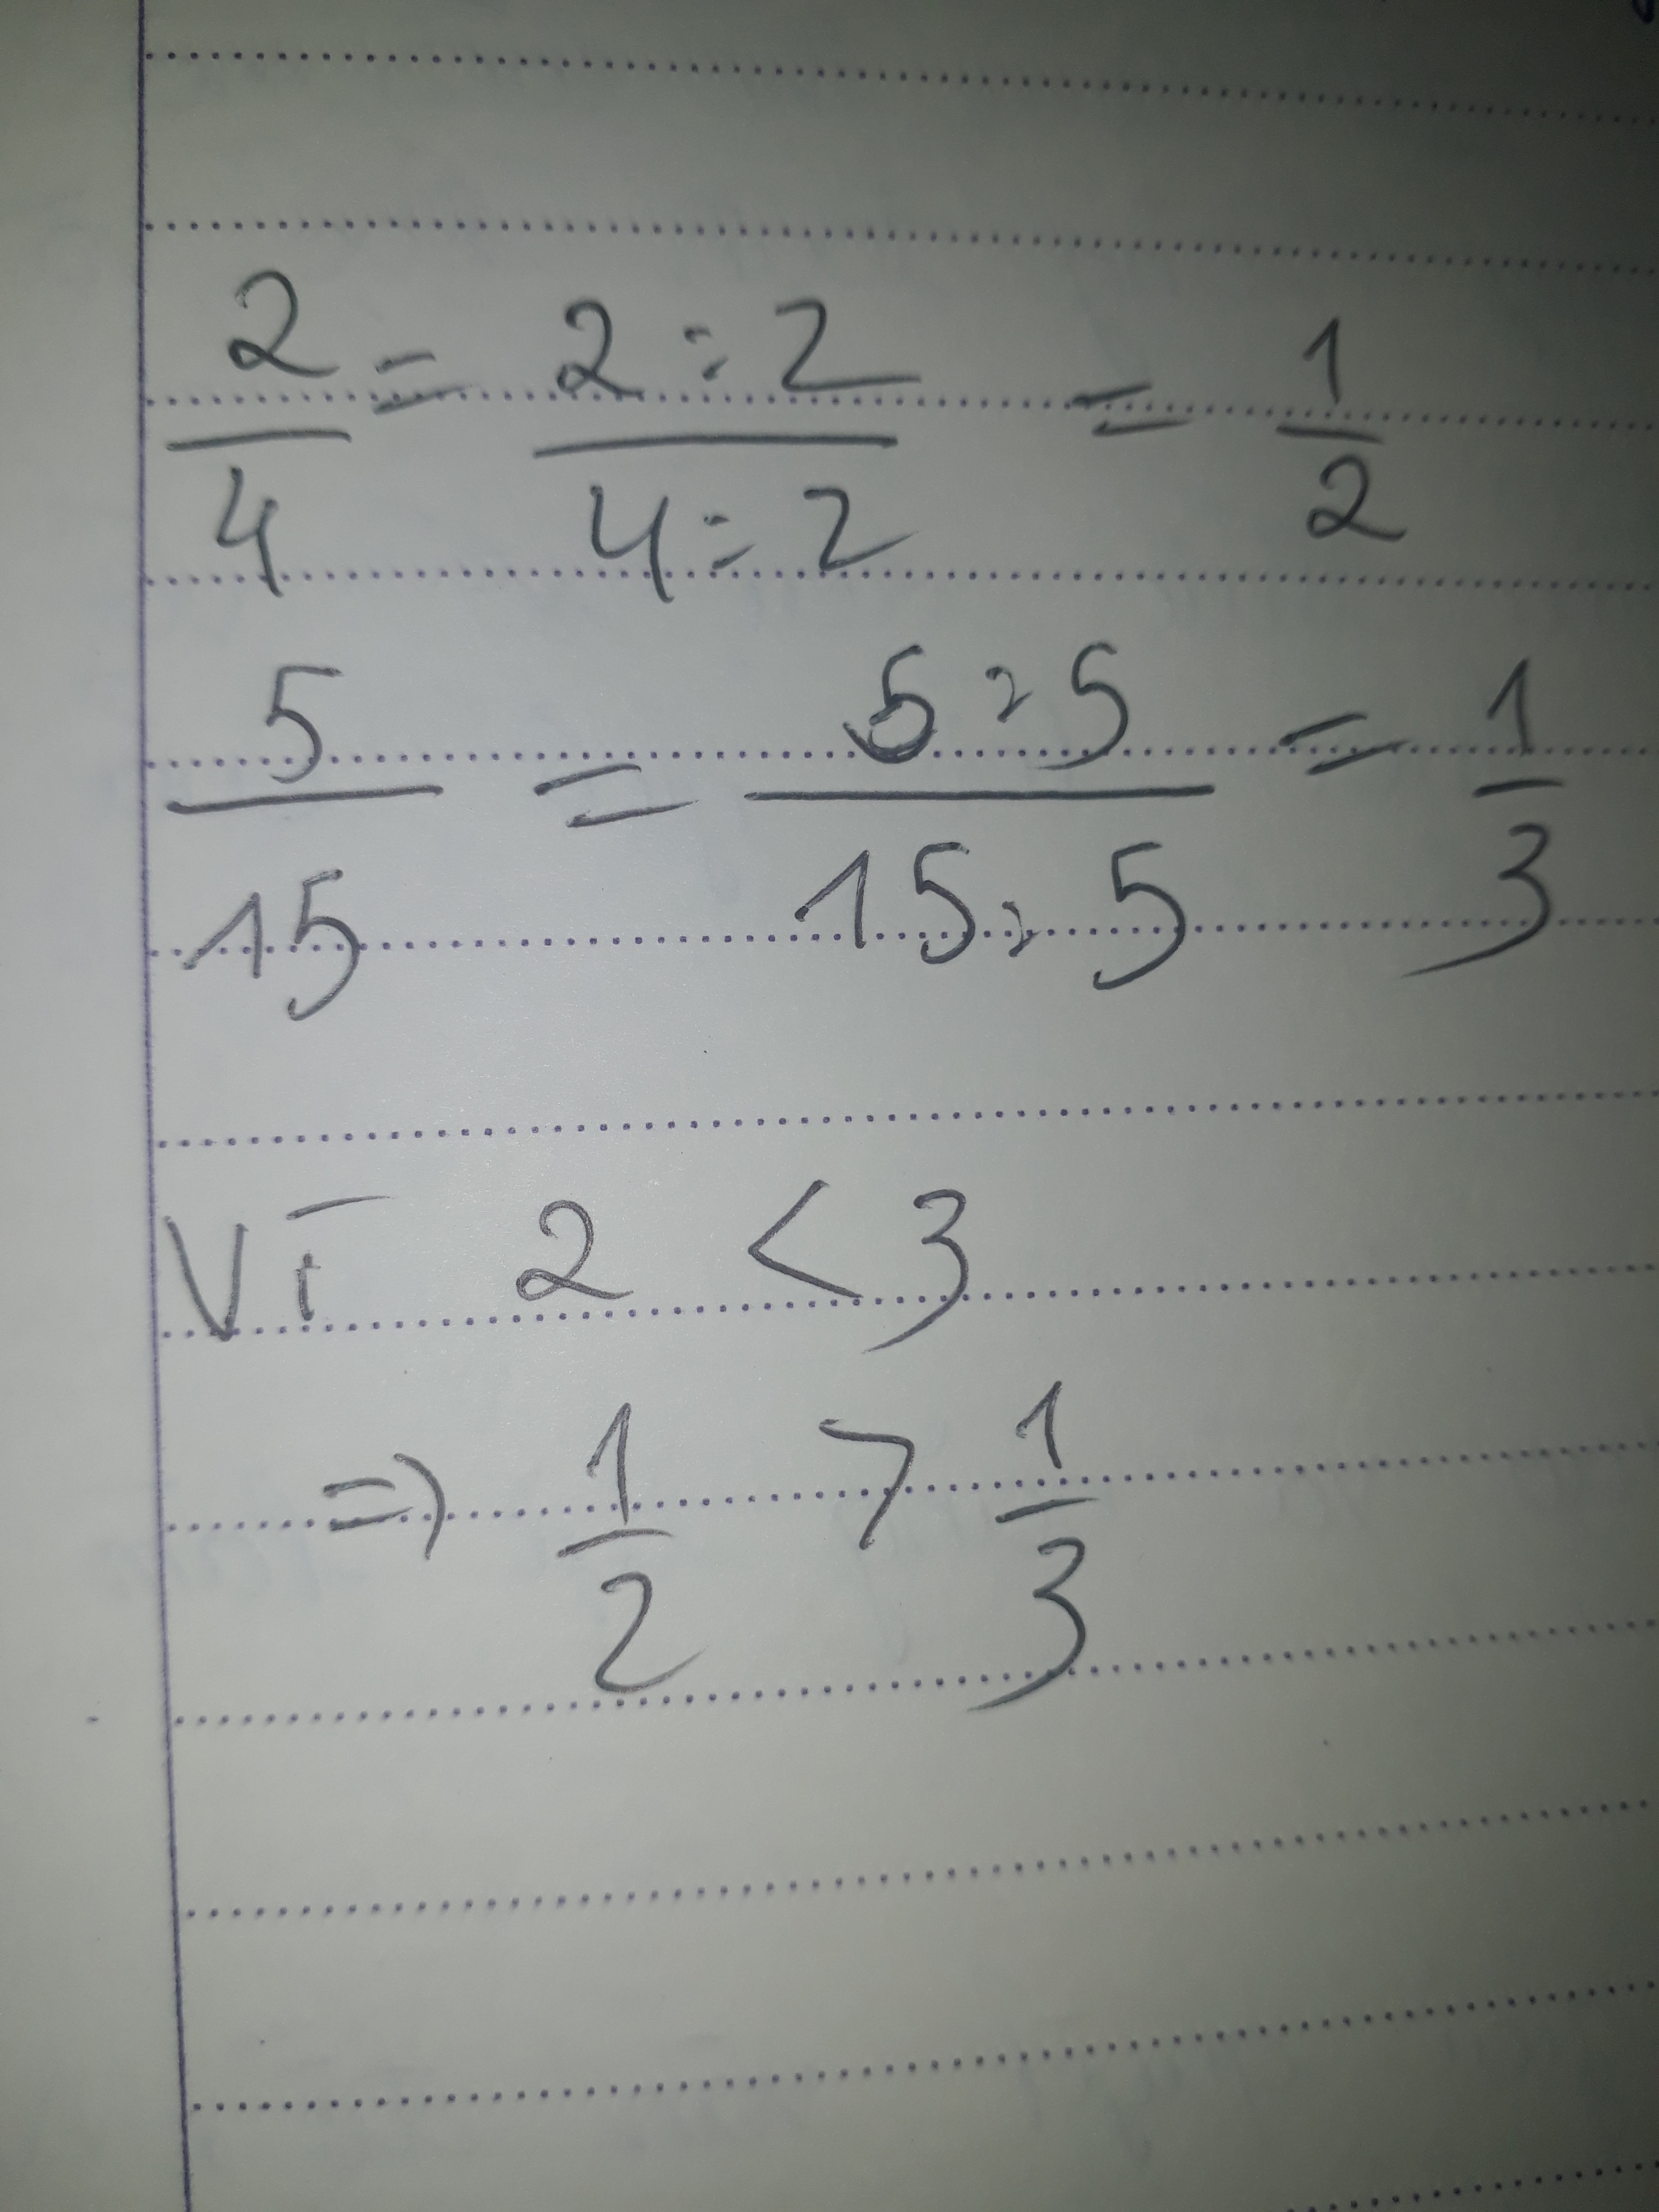 2/4 = 2:2/4:2 = 1/2
5/15 = 5:5/15:5 = 1/3
Vì 2 < 3
=> 1/2 > 1/3